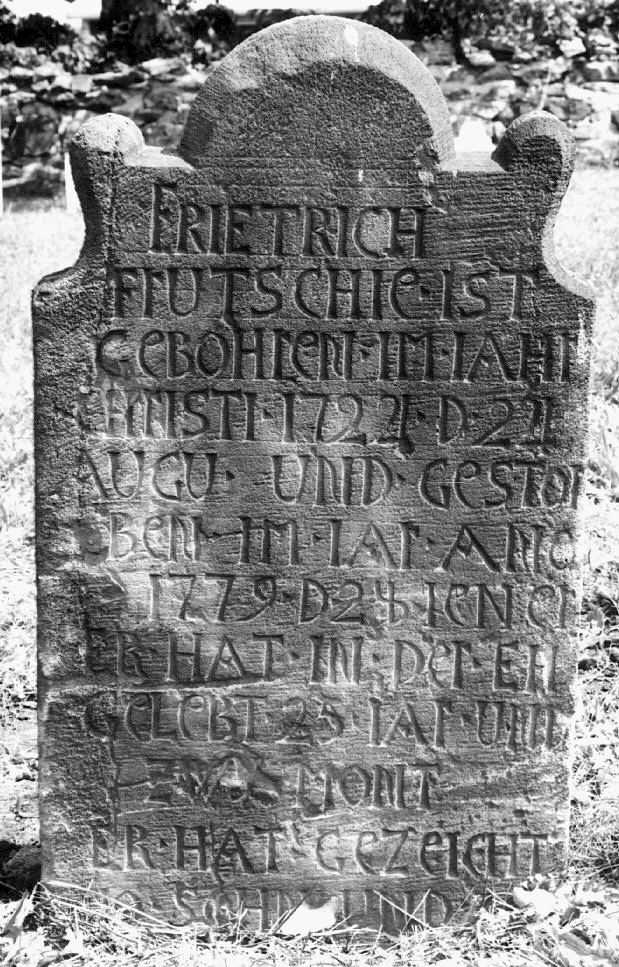 FRIETRICH
FRUTSCHIE · IST
GEBOHREN · IM · IAHR
CHRISTI · 1724 · D · 24
AUGU · UND · GESTOR
BEN · IM · IAR · ANO
1779 · D 24 · IEN ER
ER · HAT · IN · DER · EH
GELEBT · 25 · IAR · UND
ZWO MONT
ER · HAT · GEZEICHT
SOHN UND